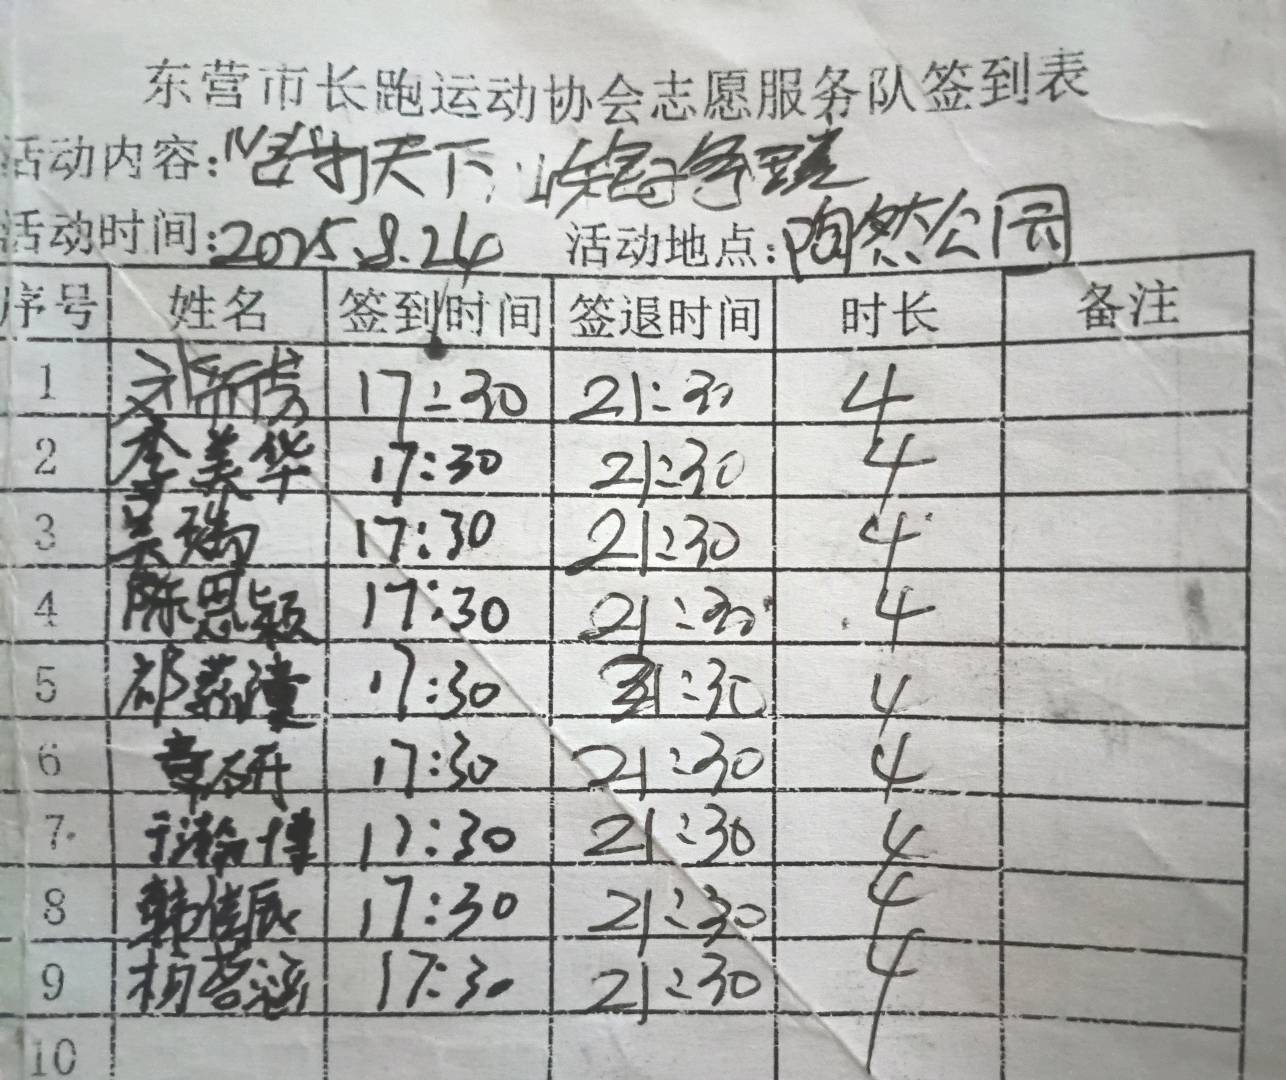 东营市长跑运动协会志愿服务队签到表
活动内容:
活动时间:2025.8.24 活动地点:陶然公园
序号 姓名 签到时间 签退时间 时长 备注
1 17:30 21:30 4
2 李美华 17:30 21:30 4
3 吴瑞 17:30 21:30 4
4 陈思颖 17:30 21:30 4
5 17:30 21:30 4
6 章研 17:30 21:30 4
7 于瀚博 17:30 21:30 4
8 韩佳辰 17:30 21:30 4
9 17:30 21:30 4
10